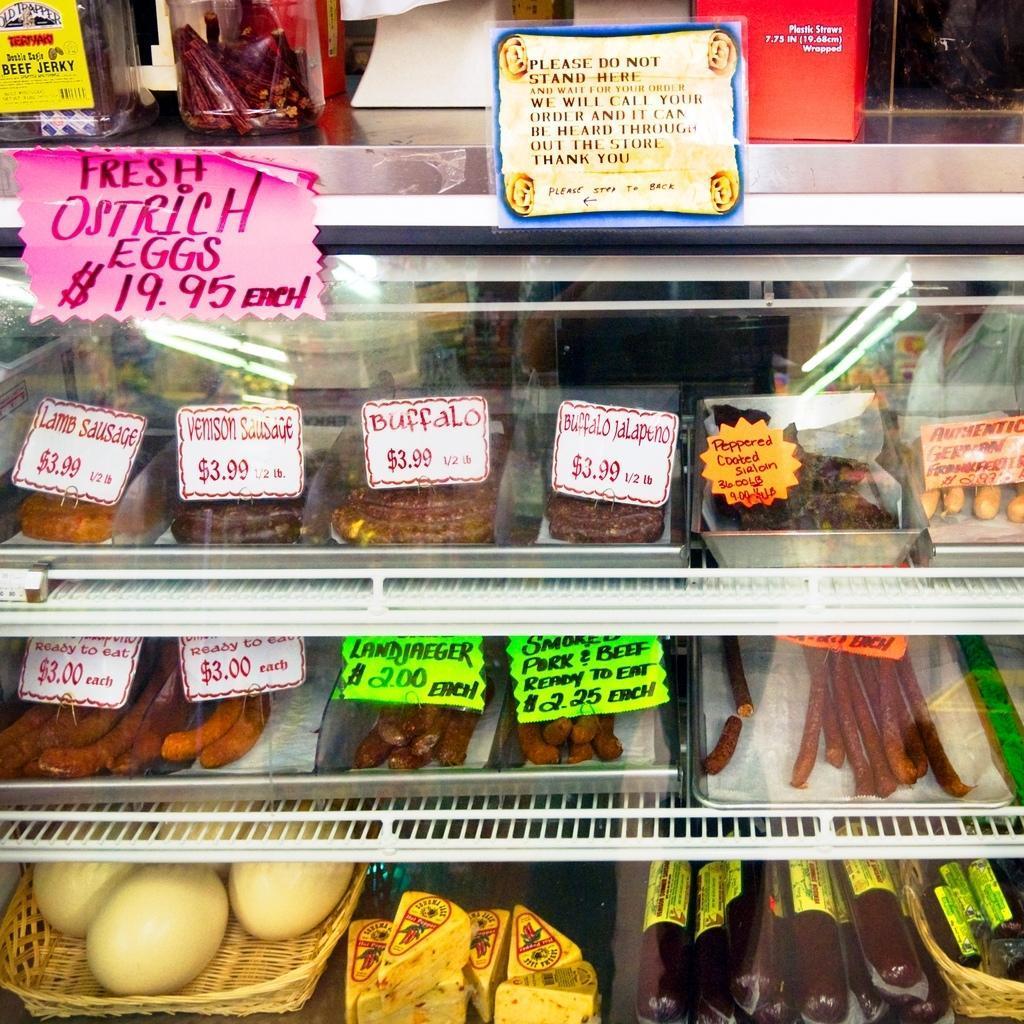 OLD TRAPPER
TERIYAKI
Double Eagle
BEEF JERKY
Plastic Straws
7.75 IN (19.68cm)
Wrapped
PLEASE DO NOT
STAND HERE
AND WAIT FOR YOUR ORDER
WE WILL CALL YOUR
ORDER AND IT CAN
BE HEARD THROUGH
OUT THE STORE
THANK YOU
PLEASE STEP TO BACK
←
FRESH
OSTRICH
EGGS
$ 19.95 EACH
Lamb Sausage
$3.99 1/2 lb
Venison Sausage
$3.99 1/2 lb.
Buffalo
$3.99 1/2 lb
Buffalo Jalapeno
$3.99 1/2 lb
Peppered
Coated
Sirloin
36.00LB
AUTHENTIC
GERMAN
Ready to eat
$3.00 each
Ready to eat
$3.00 each
LANDJAEGER
$ 2.00 EACH
SMOKED
PORK & BEEF
READY TO EAT
$2.25 EACH
EACH